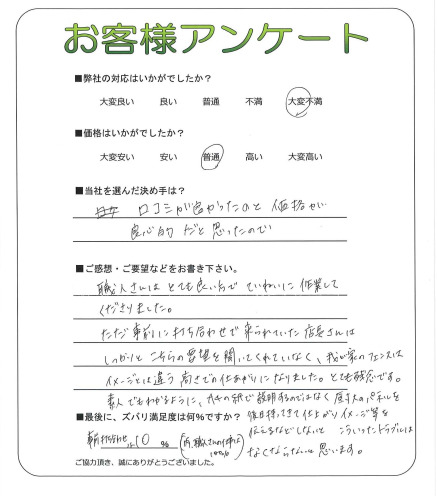 お客様アンケート
■弊社の対応はいかがでしたか?
大変良い 良い 普通 不満 大変不満
■価格はいかがでしたか?
大変安い 安い 普通 高い 大変高い
■当社を選んだ決め手は?
口コミが良かったのと 価格が
良心的 だと思ったので
■ご感想・ご要望などをお書き下さい。
職人さんは とても良い方で ていねいに 作業して
くださりました。
ただ 事前に打ち合わせで 来られていた店長さんは
しっかりと こちらの要望を聞いてくれていなく、我が家のフェンスは
イメージとは違う 高さでの仕上がりになりました。とても残念です。
素人でもわかるように、 紙で 説明するのではなく 原寸大のパネルを
■最後に、ズバリ満足度は何%ですか? 後日持ってきて 仕上がりイメージ等を
打ち合わせ 10 % 職人さんの仕事は 100% 伝えるなどしないと こういったトラブルは
なくならないと思います。
ご協力頂き、誠にありがとうございました。